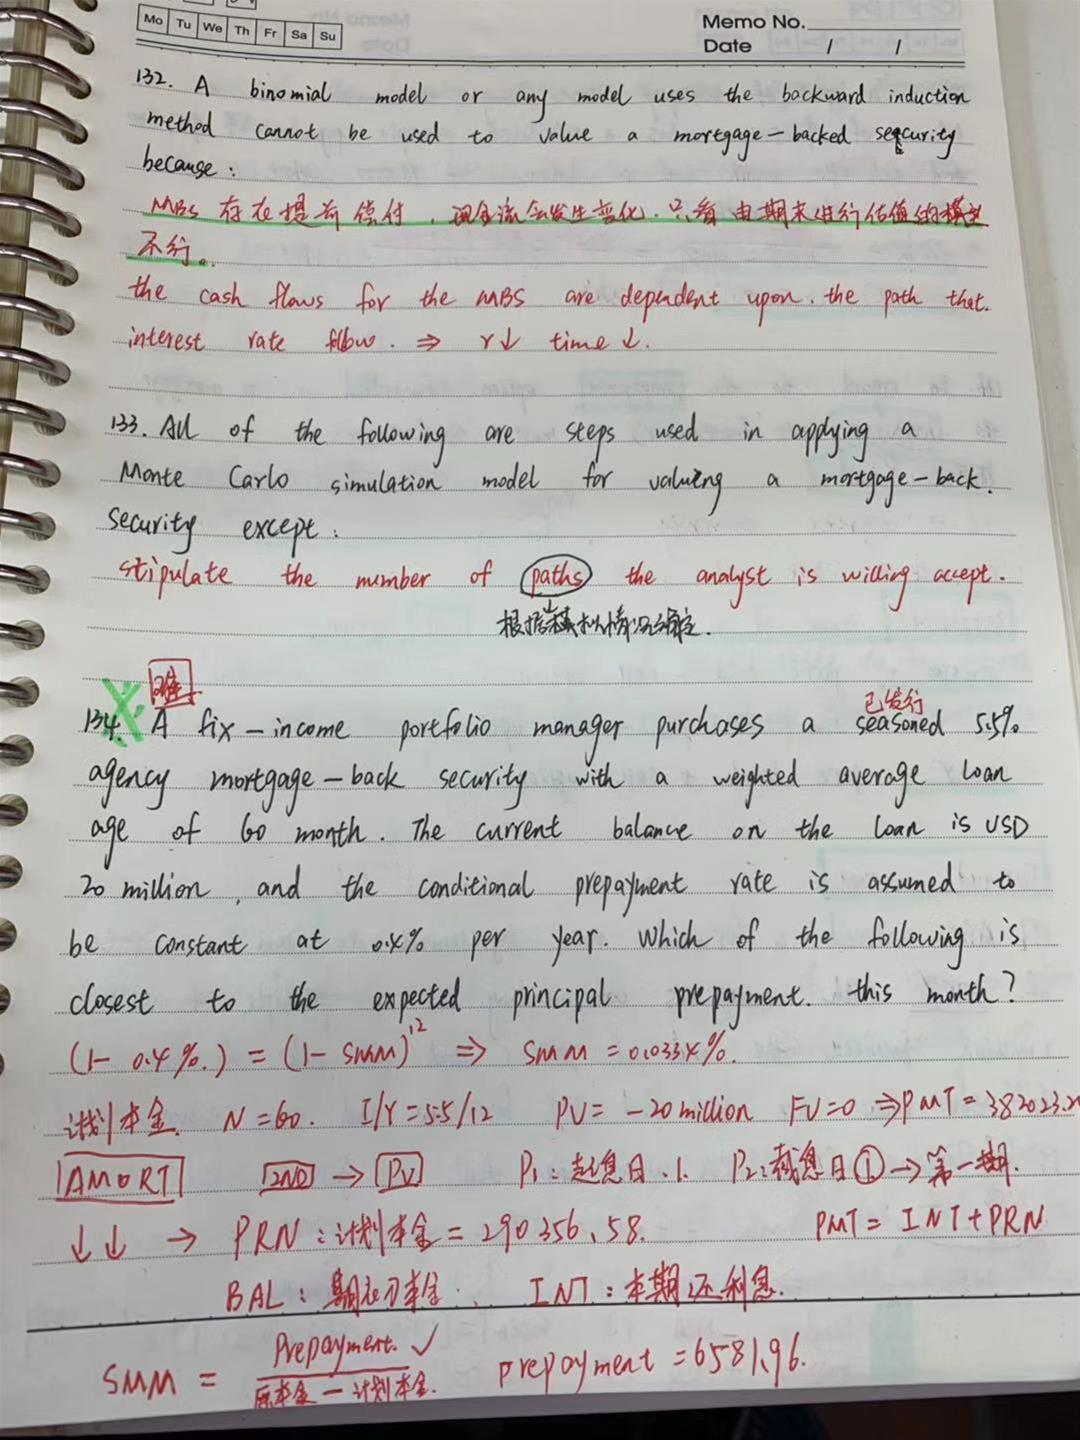 Mo Tu We Th Fr Sa Su
Memo No.
Date / /
132. A binomial model or any model uses the backward induction
method cannot be used to value a mortgage-backed security
because:
MBS 存在提前偿付，现金流会发生变化，只看由期末进行估值的模型
不行。
the cash flows for the MBS are dependent upon. the path that.
interest rate follow. ⇒ r↓ time↓.
133. All of the following are steps used in applying a
Monte Carlo simulation model for valueng a mortgage-back.
security except:
stipulate the number of paths the analyst is willing accept.
↓
根据模拟情况确定.
难
已发行
134. A fix-income portfolio manager purchases a seasoned 5.5%
agency mortgage-back security with a weighted average loan
age of 60 month. The current balance on the loan is USD
20 million, and the conditional prepayment rate is assumed to
be constant at 0.4% per year. Which of the following is
closest to the expected principal prepayment. this month?
(1-0.4%.) = (1-SMM)^12 ⇒ SMM = 0.0334%.
计划本金. N=60. I/Y=5.5/12 PV=-20million FV=0 ⇒PMT=382023.2
AMORT 2ND → PV P1:起息日.1. P2:截息日① → 第一期.
↓↓ → PRN:计划本金=290356.58. PMT=INT+PRN
BAL: 期初本金. INT:本期还利息.
SMM = Prepayment.✓ / 原本金-计划本金. prepayment =6581.96.